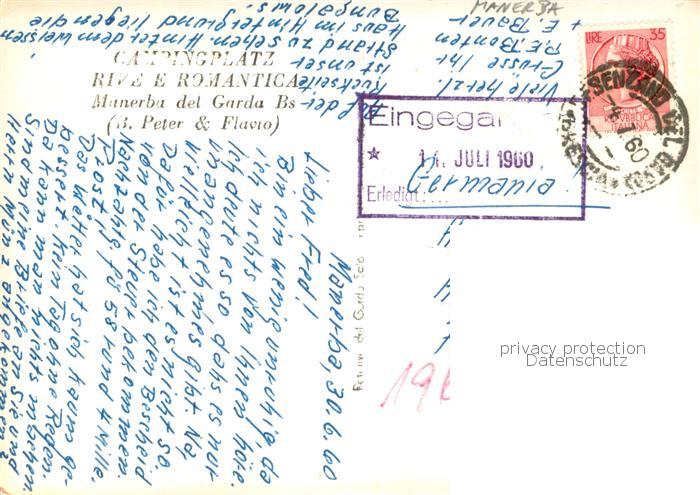 MANERBA
CAMPINGPLATZ
RIVE E ROMANTICA
Manerba del Garda Bs
(B. Peter & Flavio)
Manerba, 30.6.60
Lieber Fred!
Bin ein wenig unruhig, da
ich nichts von Ihnen höre.
Ich deute es so dahs es nur
unangenehmes gibt. Na,
vielleicht ist es nicht so.
Dafür habe ich den Bescheid
von der Steuer bekommen.
Nachzahlg für 58 rund 4 Mille.
Prost!
Das Wetter hat sich kaum ge-
bessert. Kein Tag ohne Regen.
Da kann man nichts machen.
Sind meine Briefe an Sie und
Herrn Münz angekommen?
Auf der
Rückseite
ist unser
Strand zu sehen. Hinter dem weissen
Haus im Hintergrund liegen die
Bungalows.
Viele herzl.
Grüsse Ihr
P.E. Bonten
+ E. Bauer
LIRE 35
REPUBBLICA
ITALIANA
DESENZANO DEL GARDA
60
Eingegan
* 11. JULI 1960
Erledigt
Germania
del Garda Salò
196
privacy protection
Datenschutz